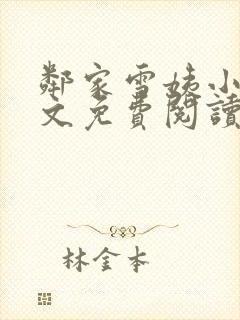 鄰家雪姨小
文免費閱讀
林金本